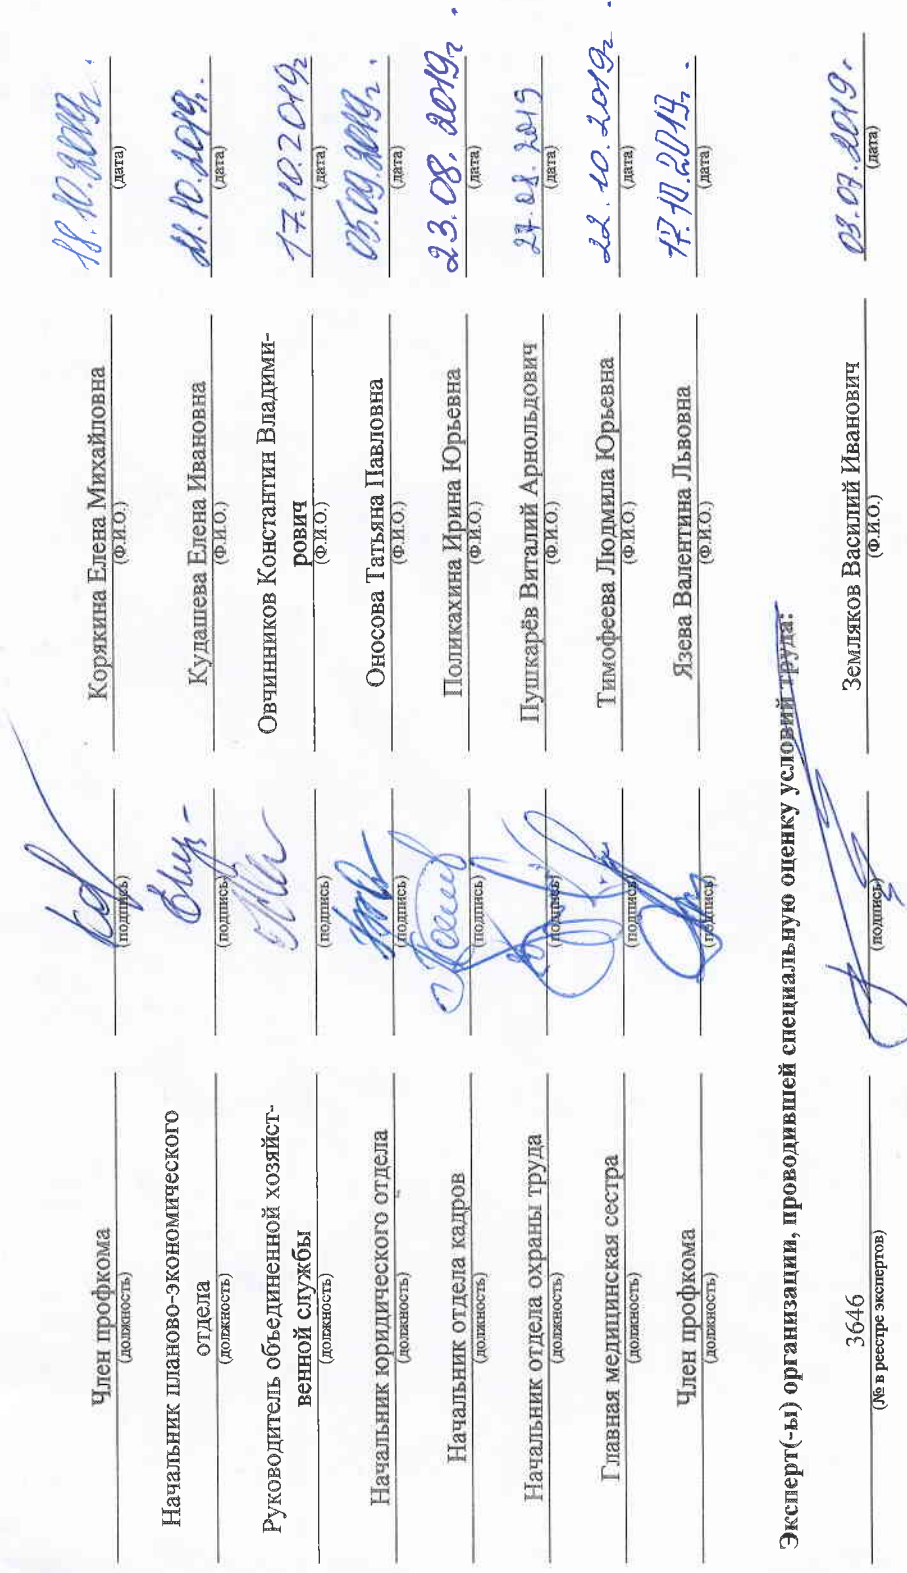 Член профкома Корякина Елена Михайловна 18.10.2019г.
(должность) (подпись) (Ф.И.О.) (дата)
Начальник планово-экономического
отдела Кудашева Елена Ивановна 21.10.2019г.
(должность) (подпись) (Ф.И.О.) (дата)
Руководитель объединенной хозяйст- Овчинников Константин Владими-
венной службы рович 17.10.2019г
(должность) (подпись) (Ф.И.О.) (дата)
Начальник юридического отдела Оносова Татьяна Павловна 05.09.2019г.
(должность) (подпись) (Ф.И.О.) (дата)
Начальник отдела кадров Поликахина Ирина Юрьевна 23.08.2019г.
(должность) (подпись) (Ф.И.О.) (дата)
Начальник отдела охраны труда Пушкарёв Виталий Арнольдович
(должность) (подпись) (Ф.И.О.) (дата)
Главная медицинская сестра Тимофеева Людмила Юрьевна 22.10.2019г.
(должность) (подпись) (Ф.И.О.) (дата)
Член профкома Язева Валентина Львовна 17.10.2019.
(должность) (подпись) (Ф.И.О.) (дата)
Эксперт(-ы) организации, проводившей специальную оценку условий труда:
3646 Земляков Василий Иванович 03.07.2019г.
(№ в реестре экспертов) (подпись) (Ф.И.О.) (дата)